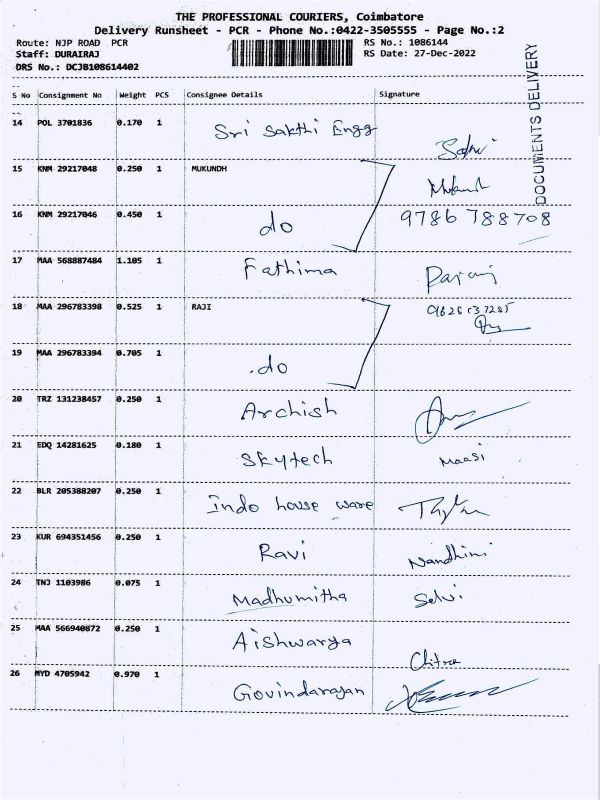 THE PROFESSIONAL COURIERS, Coimbatore
Delivery Runsheet - PCR - Phone No.:0422-3505555 - Page No.:2
Route: NJP ROAD PCR RS No.: 1086144
Staff: DURAIRAJ RS Date: 27-Dec-2022
DRS No.: DCJB108614402
DOCUMENTS DELIVERY
S No Consignment No Weight PCS Consignee Details Signature
14 POL 3701836 0.170 1 Sri Sakthi Engg
15 KNM 29217048 0.250 1 MUKUNDH
16 KNM 29217046 0.450 1 do 9786788708
17 MAA 568887484 1.105 1 Fathima
18 MAA 296783398 0.525 1 RAJI
19 MAA 296783394 0.705 1 .do
20 TRZ 131238457 0.250 1 Archish
21 EDQ 14281625 0.180 1 Skytech Maasi
22 BLR 205388207 0.250 1 Indo house ware
23 KUR 694351456 0.250 1 Ravi Nandhini
24 TNJ 1103986 0.075 1 Madhumitha Selvi
25 MAA 566940872 0.250 1 Aishwarya Chitra
26 MYD 4705942 0.970 1 Govindarajan